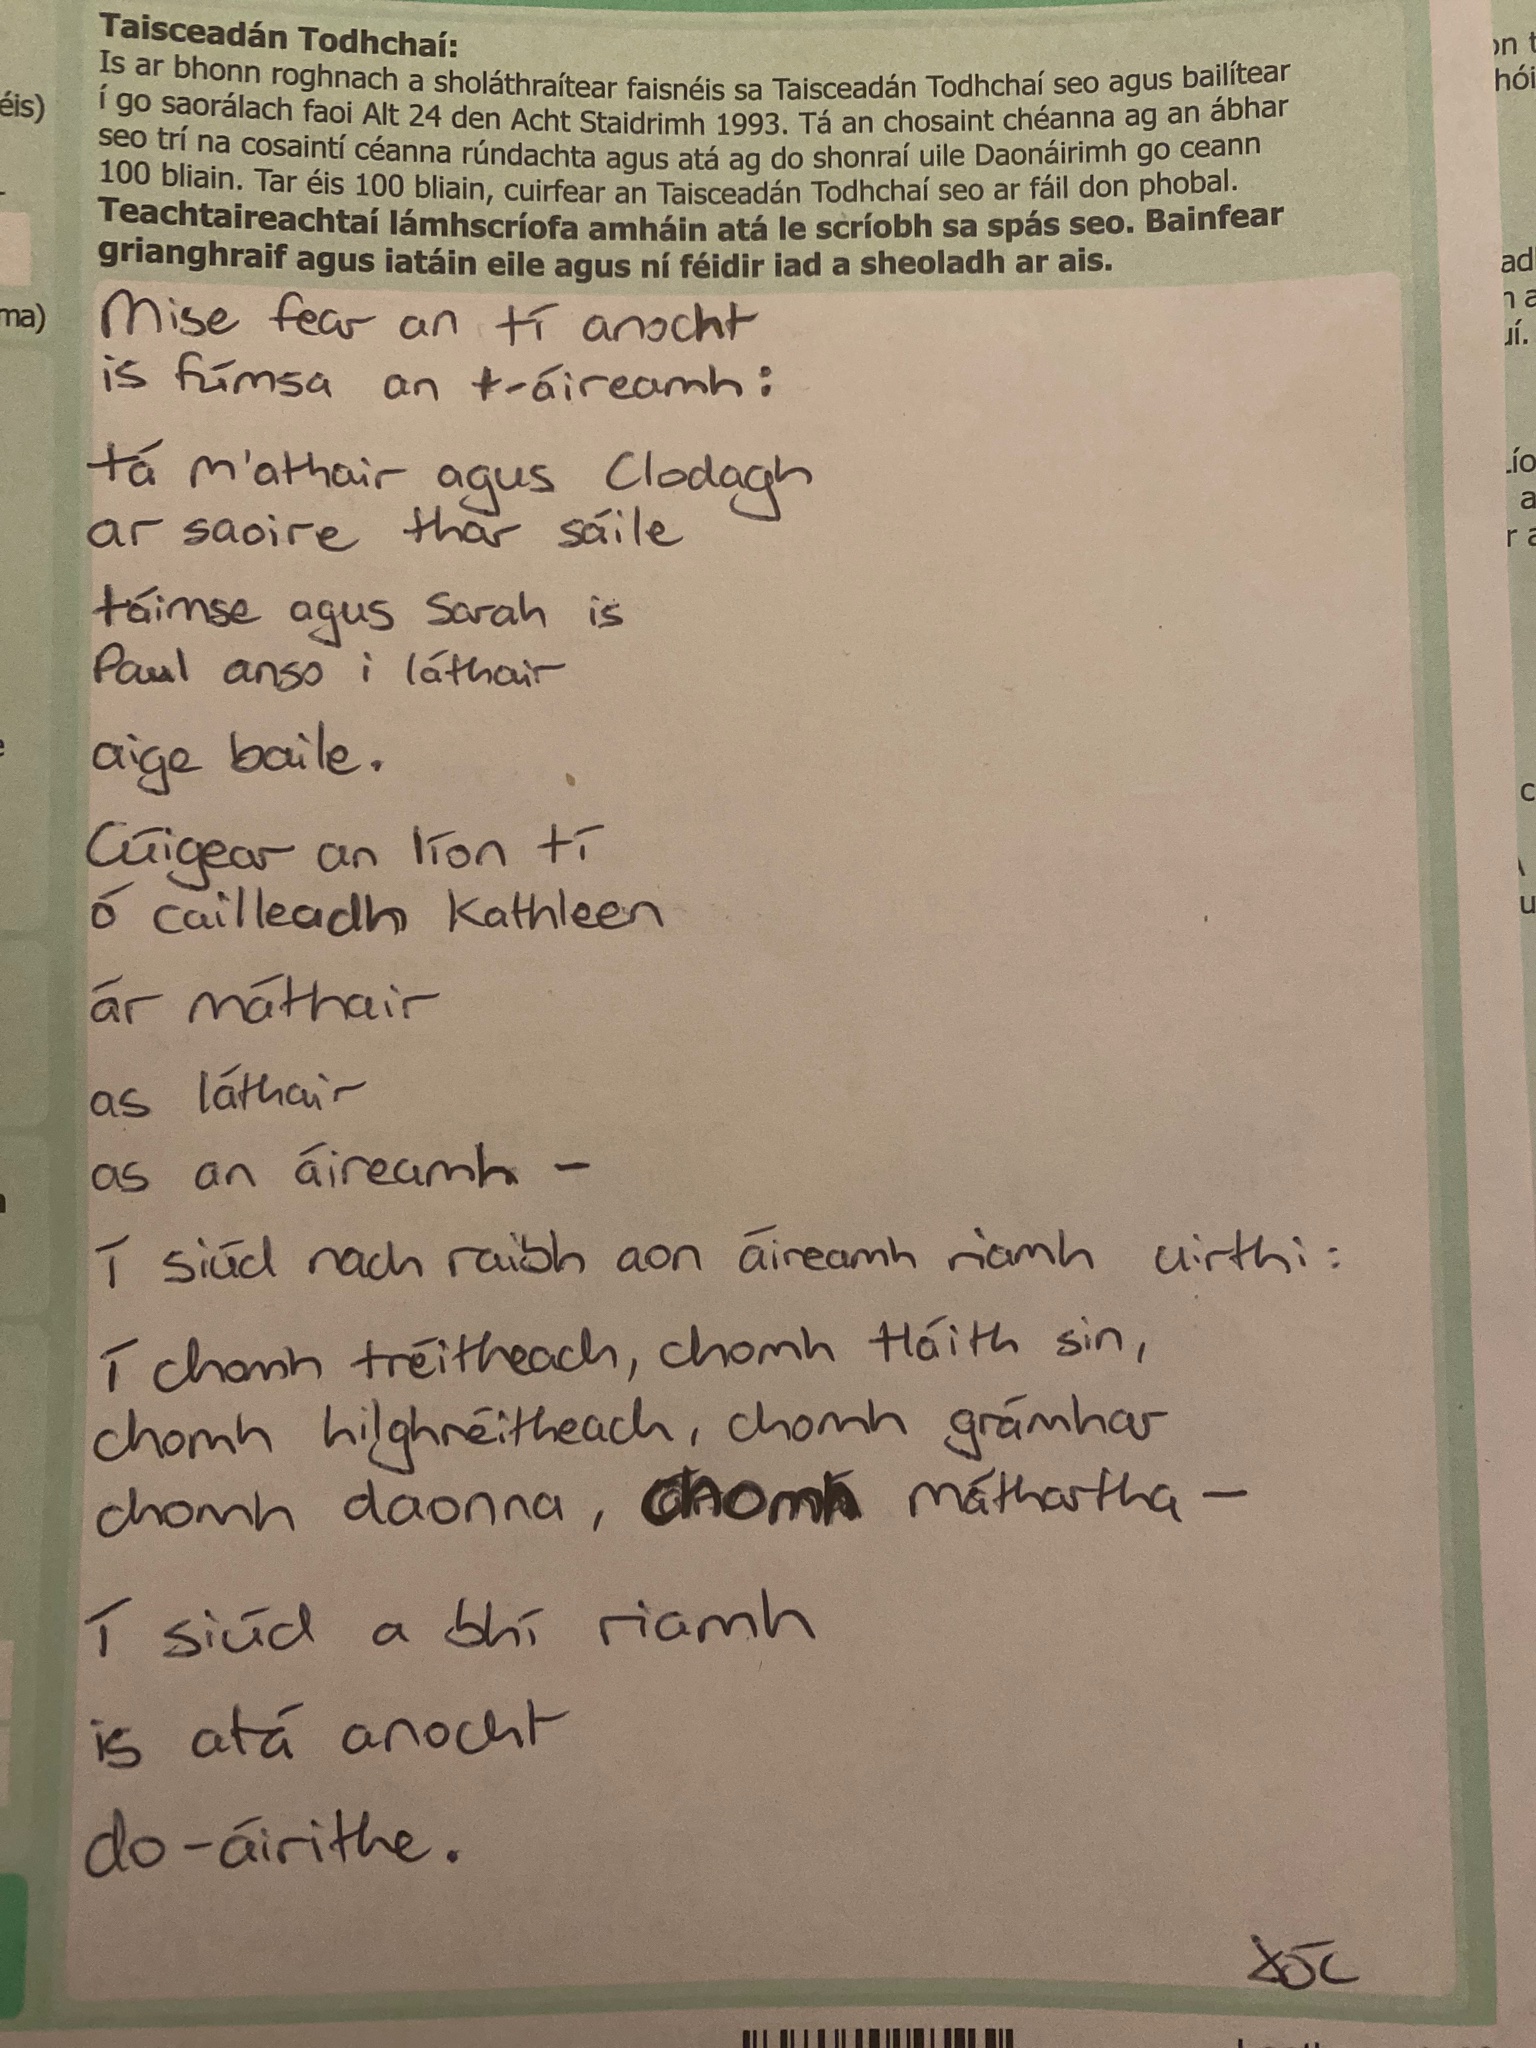 Taisceadán Todhchaí:
Is ar bhonn roghnach a sholáthraítear faisnéis sa Taisceadán Todhchaí seo agus bailítear
í go saorálach faoi Alt 24 den Acht Staidrimh 1993. Tá an chosaint chéanna ag an ábhar
seo trí na cosaintí céanna rúndachta agus atá ag do shonraí uile Daonáirimh go ceann
100 bliain. Tar éis 100 bliain, cuirfear an Taisceadán Todhchaí seo ar fáil don phobal.
Teachtaireachtaí lámhscríofa amháin atá le scríobh sa spás seo. Bainfear
grianghraif agus iatáin eile agus ní féidir iad a sheoladh ar ais.
Mise fear an tí anocht
is fúmsa an t-áireamh:
tá m'athair agus Clodagh
ar saoire thar sáile
táimse agus Sarah is
Paul anso i láthair
aige baile.
Cúigear an líon tí
ó cailleadh Kathleen
ár máthair
as láthair
as an áireamh –
Í siúd nach raibh aon áireamh riamh uirthi:
Í chomh tréitheach, chomh tláith sin,
chomh hilghnéitheach, chomh grámhar
chomh daonna, chomh máthartha –
Í siúd a bhí riamh
is atá anocht
do-áirithe.